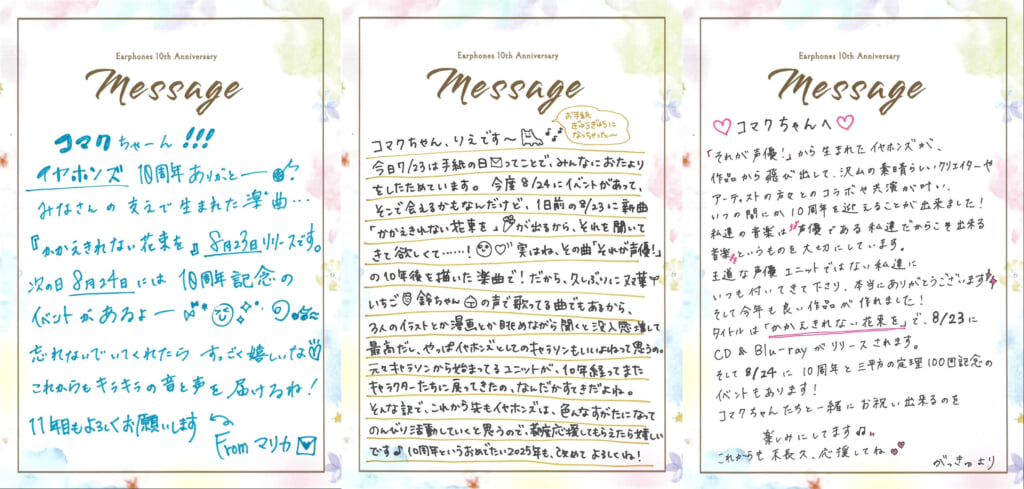 Earphones 10th Anniversary
Message
コマクちゃーん!!!
イヤホンズ 10周年ありがとー
みなさんの支えで生まれた楽曲…
『かかえきれない花束を』8月23日リリースです。
次の日8月24日には10周年記念の
イベントがあるよー
忘れないでいてくれたら すっごく嬉しいな
これからもキラキラの音と声を届けるね!
11年目もよろしくお願いします
From マリカ
Earphones 10th Anniversary
Message
お手紙
ぎゅうぎゅうに
なっちゃった〜
コマクちゃん、りえです〜
今日7/23は手紙の日ってことで、みんなにおたより
をしたためています。 今度8/24にイベントがあって、
そこで会えるかもなんだけど、1日前の8/23に新曲
「かかえきれない花束を」が出るから、それを聞いて
きて欲しくて……! 実はね、その曲「それが声優!」
の10年後を描いた楽曲で!だから、久しぶりに双葉
いちご 鈴ちゃん の声で歌ってる曲でもあるから、
3人のイラストとか漫画とか眺めながら聞くと没入感増して
最高だし、やっぱイヤホンズとしてのキャラソンもいいよねって思うの。
元々キャラソンから始まってるユニットが、10年経ってまた
キャラクターたちに戻ってきたの、なんだかすてきだよね。
そんな訳で、これから先もイヤホンズは、色んなすがたになって
のんびり活動していくと思うので、都度応援してもらえたら嬉しい
です♪10周年というおめでたい2025年も、改めてよろしくね!
Earphones 10th Anniversary
Message
コマクちゃんへ
「それが声優!」から生まれたイヤホンズが、
作品から飛び出して、沢山の素晴らしいクリエイターや
アーティストの方々とのコラボや共演が叶い、
いつの間にか10周年を迎えることが出来ました!
私達の音楽は"声優である私達だからこそ出来る
音楽"というものを大切にしています。
王道な声優ユニットではない私達に
いつも付いてきて下さり、本当にありがとうございます
そして今年も良い作品が作れました!
タイトルは「かかえきれない花束を」で、8/23に
CD & Blu-rayがリリースされます。
そして8/24に10周年と三平方の定理100回記念の
イベントもあります!
コマクちゃんたちと一緒にお祝い出来るのを
楽しみにしてますね。
これからも末長く、応援してね
がっきゅより